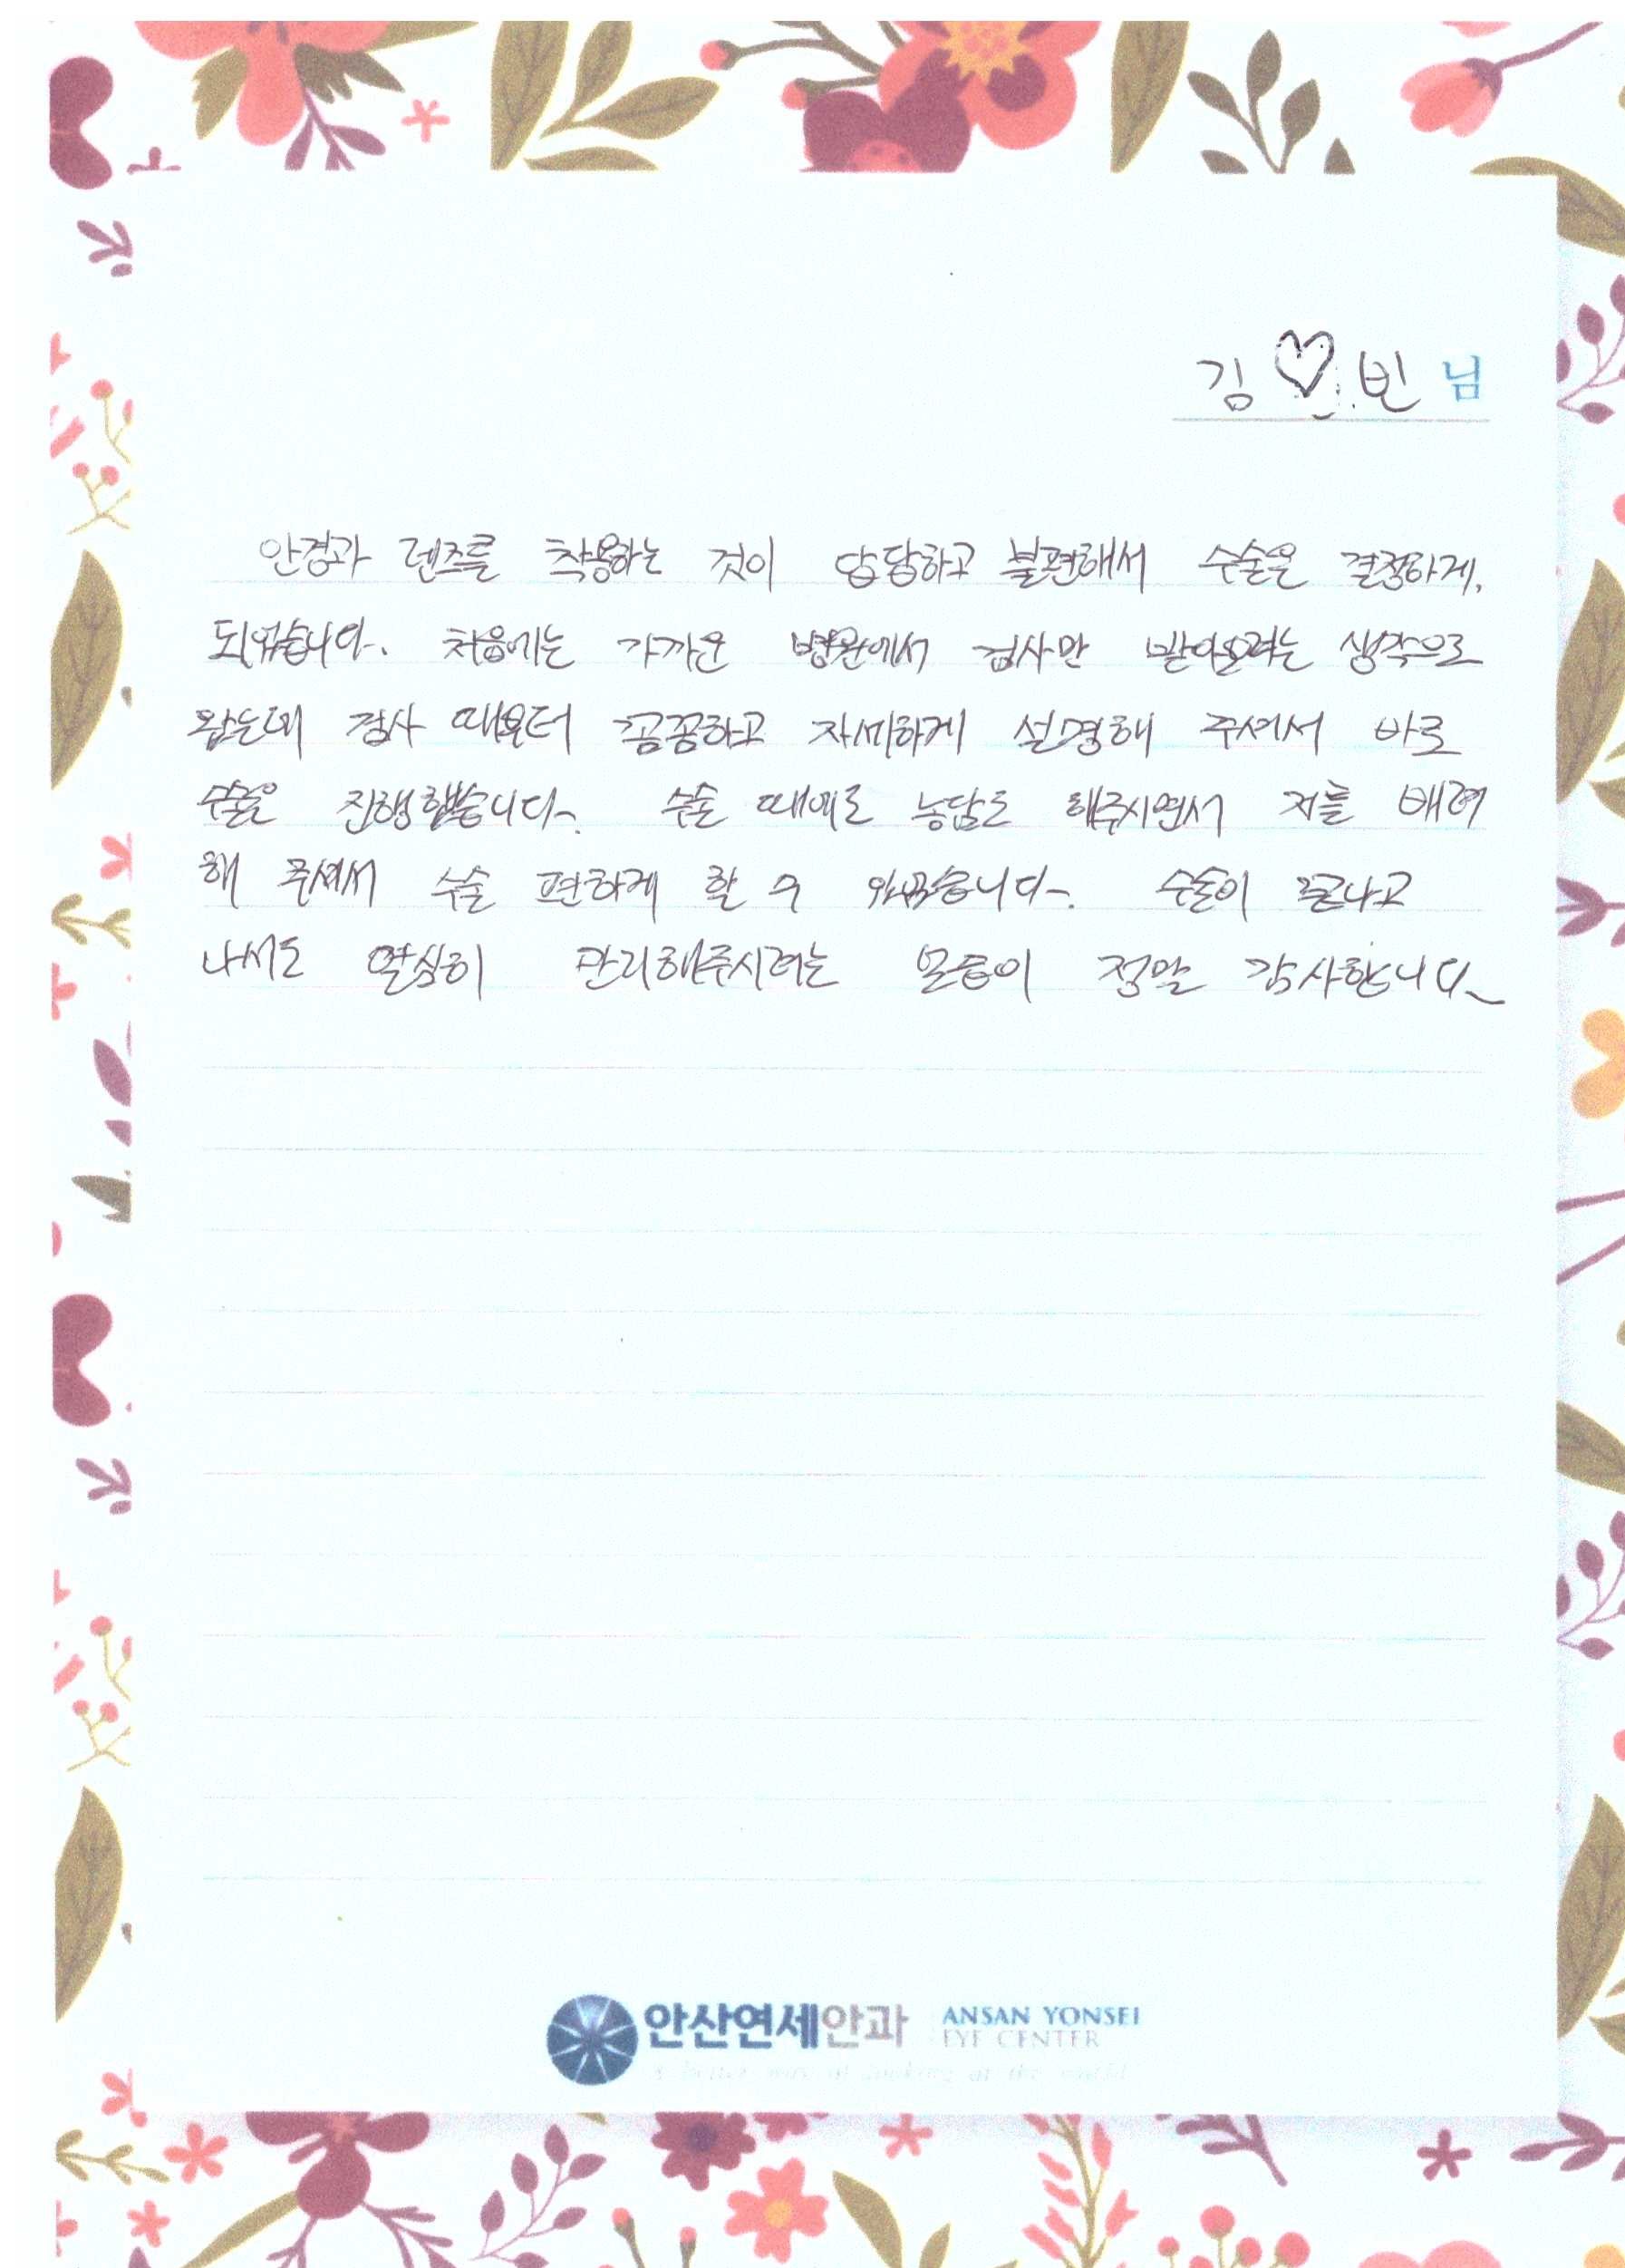 김♡빈 님
안경과 렌즈를 착용하는 것이 답답하고 불편해서 수술은 결정하게
되었습니다. 처음에는 가까운 병원에서 검사만 받아보려는 생각으로
왔는데 검사 때부터 꼼꼼하고 자세하게 설명해 주셔서 바로
수술을 진행했습니다. 수술 때에도 농담도 해주시면서 저를 배려
해 주셔서 수술 편하게 할 수 있었습니다. 수술이 끝나고
나서도 열심히 관리해주시려는 모습이 정말 감사합니다
안산연세안과 ANSAN YONSEI
EYE CENTER
A better way of looking at the world